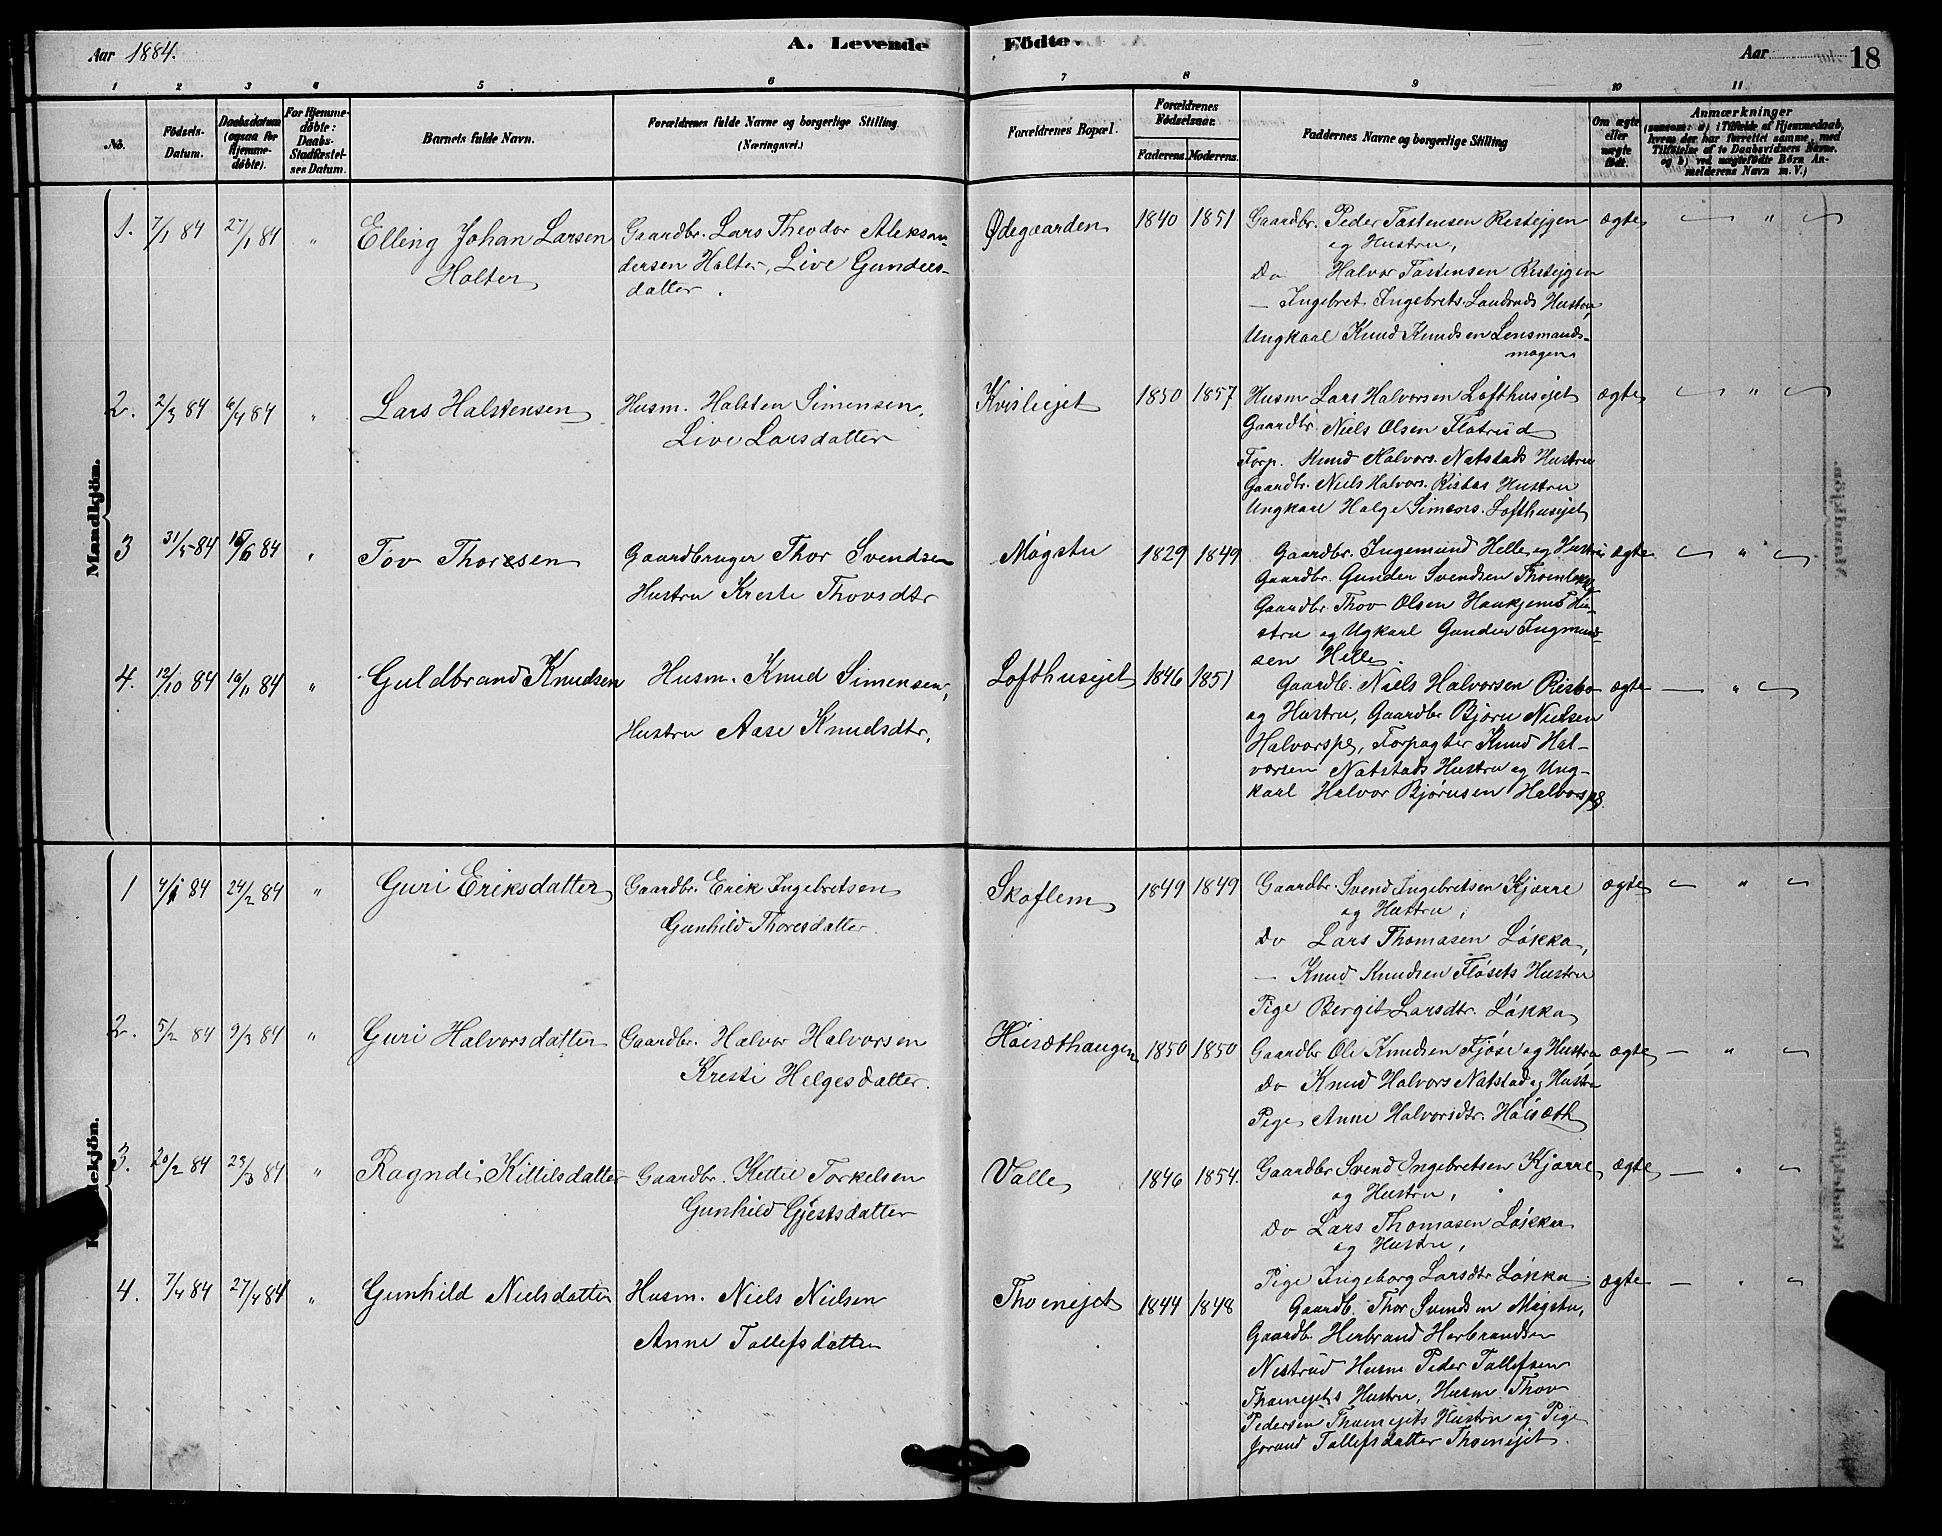 Aar 1884. A. Levende Födte. Aar 18
1 2 3 4 5 6 7 8 9 10 11
No.
Födsels-
Datum.
Daabsdatum
(ogsaa for
Hjemme-
döbte).
For Hjemme-
döbte:
Daabs-
Stadfæstel-
ses Datum.
Barnets fulde Navn.
Forældrenes fulde Navne og borgerlige Stilling.
(Næringsvei.)
Forældrenes Bopæl.
Forældrenes
Födselsaar.
Faderens. Moderens.
Faddernes Navne og borgerlige Stilling
Om ægte
eller
uægte
født.
Anmærkninger
(saasom: a) i Tilfælde af Hjemmedaab,
hvem der har forrettet samme, med
Tilföielse af to Daabsvidners Navne.
og b) ved uægtefödte Börn An-
melderens Navn m. V.)
Mandkjön.
1. 7/1 84 27/1 84 " Elling Johan Larsen
Holter
Gaardbr. Lars Theodor Aleksan-
dersen Holter, Live Gunders-
datter.
Ødegaarden 1840 1851
Gaardbr. Peder Tostensen Resteigen
og Hustru,
Do Halvor Tostensen Resteigen
— Ingebret Ingebrets. Hustru,
Ungkarl Knud Knudsen Lensmands-
mogen
ægte "
2. 2/3 84 6/4 84 " Lars Halstensen
Husm. Halsten Simensen,
Live Larsdatter
Kvisliejet 1850 1857
Husm Lars Halvorsen Lofthusejet
Gaardbr. Niels Olsen Flatrud
Forp. Knud Halvors. Natstads Hustru
Gaardbr. Niels Halvors. Hustru
Ungkarl Helge Simens. Lofthusejet
ægte "
3 31/5 84 /6 84 " Tov Thoresen
Gaardbruger Thor Svendsen
Hustru Kresti Thovsdtr
Mögstu 1829 1849
Gaardbr. Ingemund Helle og Hustru
Gaardbr. Gunder Svendsen
Gaardbr. Thov Olsen Hu-
stru og Ugkarl Gunder Ingmund-
sen Helle.
ægte "
4. 12/10 84 16/11 84 " Guldbrand Knudsen
Husm. Knud Simensen,
Hustru Aase Knudsdtr,
Lofthusejet 1846 1851
Gaardb. Niels Halvorsen Risbo
og Hustru, Gaardbr Bjørn Nielsen
Halvorspl, Forpagter Knud Hal-
vorsen Natstads Hustru og Ung-
karl Halvor Bjørnsen Halvorspl
ægte "
Kvindekjön.
1 4/1 84 24/2 84 " Guri Eriksdatter
Gaardbr. Erik Ingebretsen
Gunhild Thoresdatter.
Skoflem 1849 1849
Gaardbr. Svend Ingebretsen Kjørre
og Hustru,
Do Lars Thomasen Løkka,
— Knud Knudsen Fløsets Hustru
Pige Bergit Larsdtr. Løkka
ægte "
2. 5/2 84 9/3 84 " Guri Halvorsdatter
Gaardbr. Halvor Halvorsen
Kresti Helgesdatter.
Höisæthaugen 1850 1850
Gaardbr Ole Knudsen Fjøse og Hustru
Do Knud Halvors Natstad og Hustru
Pige Anne Halvorsdtr. Höisæth
ægte "
3. 20/2 84 23/3 84 " Ragndi Kittilsdatter
Gaardbr. Kittil Torkelsen
Gunhild Gjestsdatter
Valle 1846 1854.
Gaardbr Svend Ingebretsen Kjørre
og Hustru,
Do Lars Thomasen Løkka
og Hustru,
Pige Ingeborg Larsdtr Løkka
ægte "
4. 7/4 84 27/4 84 " Gunhild Nielsdatter
Husm. Niels Nielsen
Anne Tollefsdatter
Thoenejet 1844 1848
Gaardb. Thor Svendsen Mögstu,
Gaardb. Herbrand Herbrandsen
Nestrud Husm Peder Tollefsen
Thoenejets Hustru, Husm. Thov
Pedersen Thoenejets Hustru og Pige
Jorand Tollefsdatter Thoenejet.
ægte "